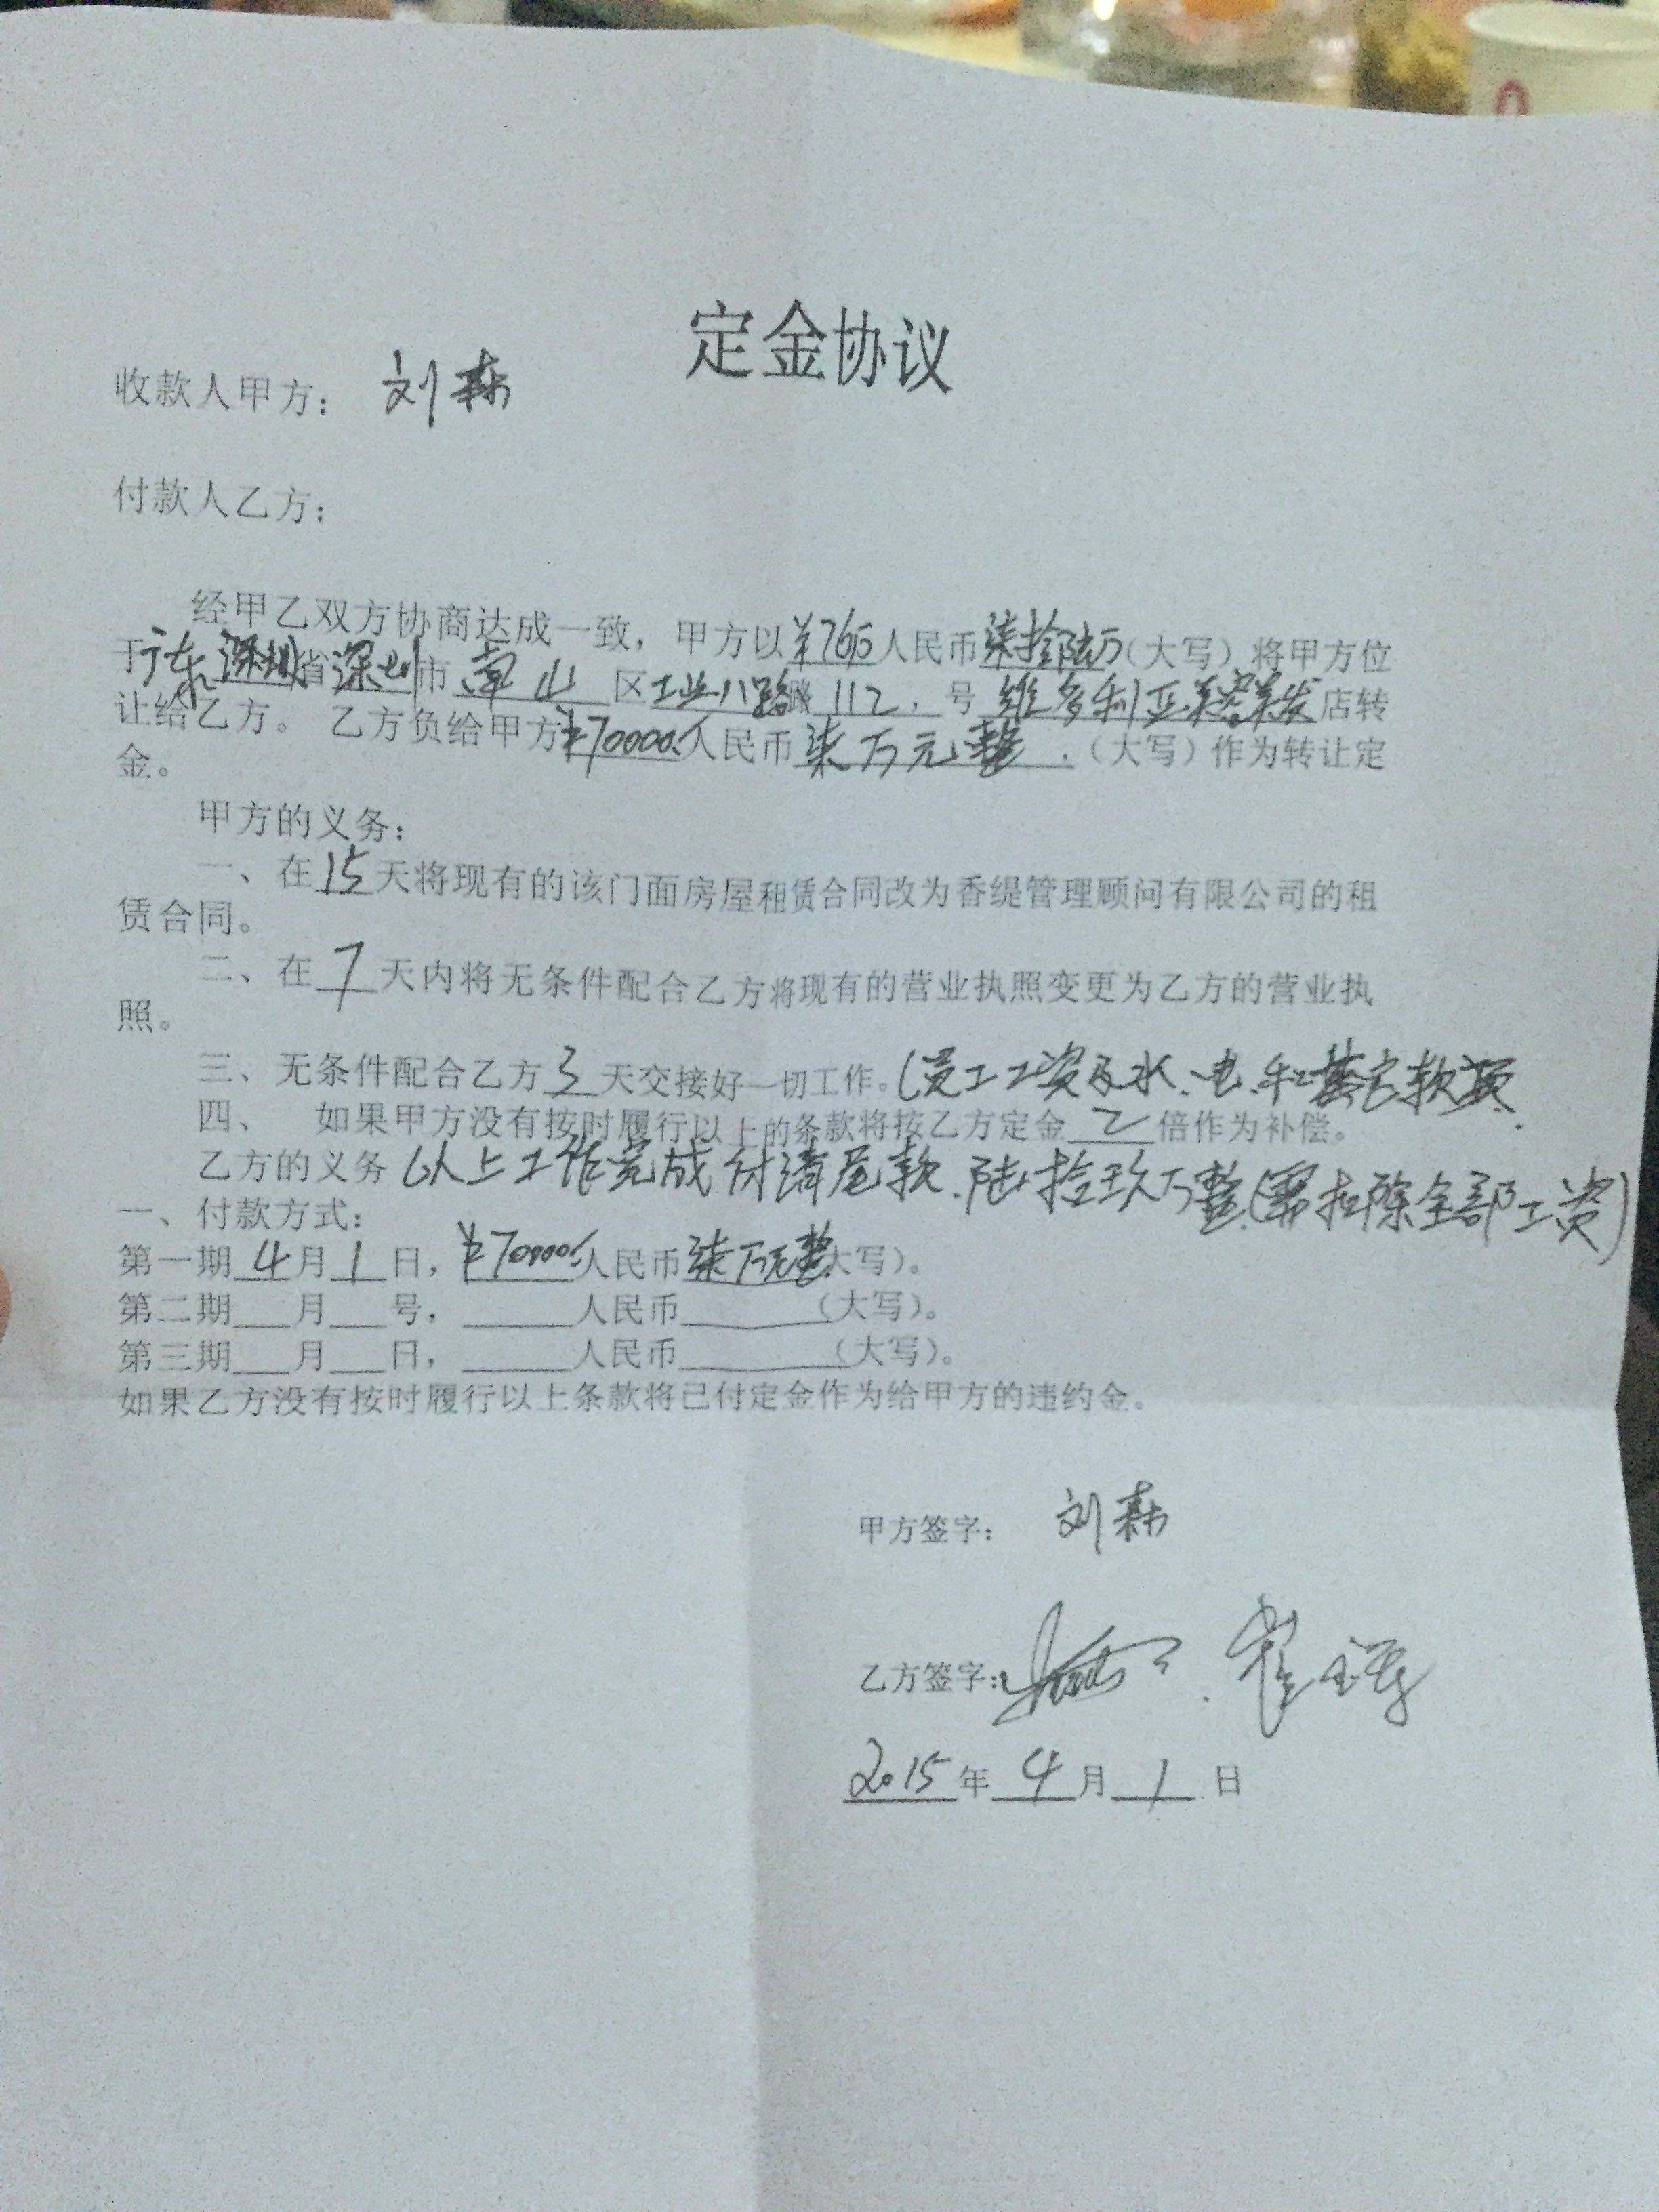 定金协议
收款人甲方： 刘
付款人乙方：
经甲乙双方协商达成一致，甲方以￥76万人民币柒拾陆万（大写）将甲方位
于广东深圳省深圳市南山区工业八路路112.号维多利亚美容美发店转
让给乙方。乙方负给甲方￥70000.人民币柒万元整.（大写）作为转让定
金。
甲方的义务：
一、在15天将现有的该门面房屋租赁合同改为香缇管理顾问有限公司的租
赁合同。
二、在7天内将无条件配合乙方将现有的营业执照变更为乙方的营业执
照。
三、无条件配合乙方3天交接好一切工作。（员工工资及水.电.和其它款项.
四、 如果甲方没有按时履行以上的条款将按乙方定金2倍作为补偿。
乙方的义务 以上工作完成付清尾款.陆拾玖万整(需扣除全部工资)
一、付款方式：
第一期4月1日，￥70000.人民币柒万元整（大写）。
第二期___月___号，______人民币_______（大写）。
第三期___月___日，______人民币________（大写）。
如果乙方没有按时履行以上条款将已付定金作为给甲方的违约金。
甲方签字： 刘
乙方签字：
2015年4月1日